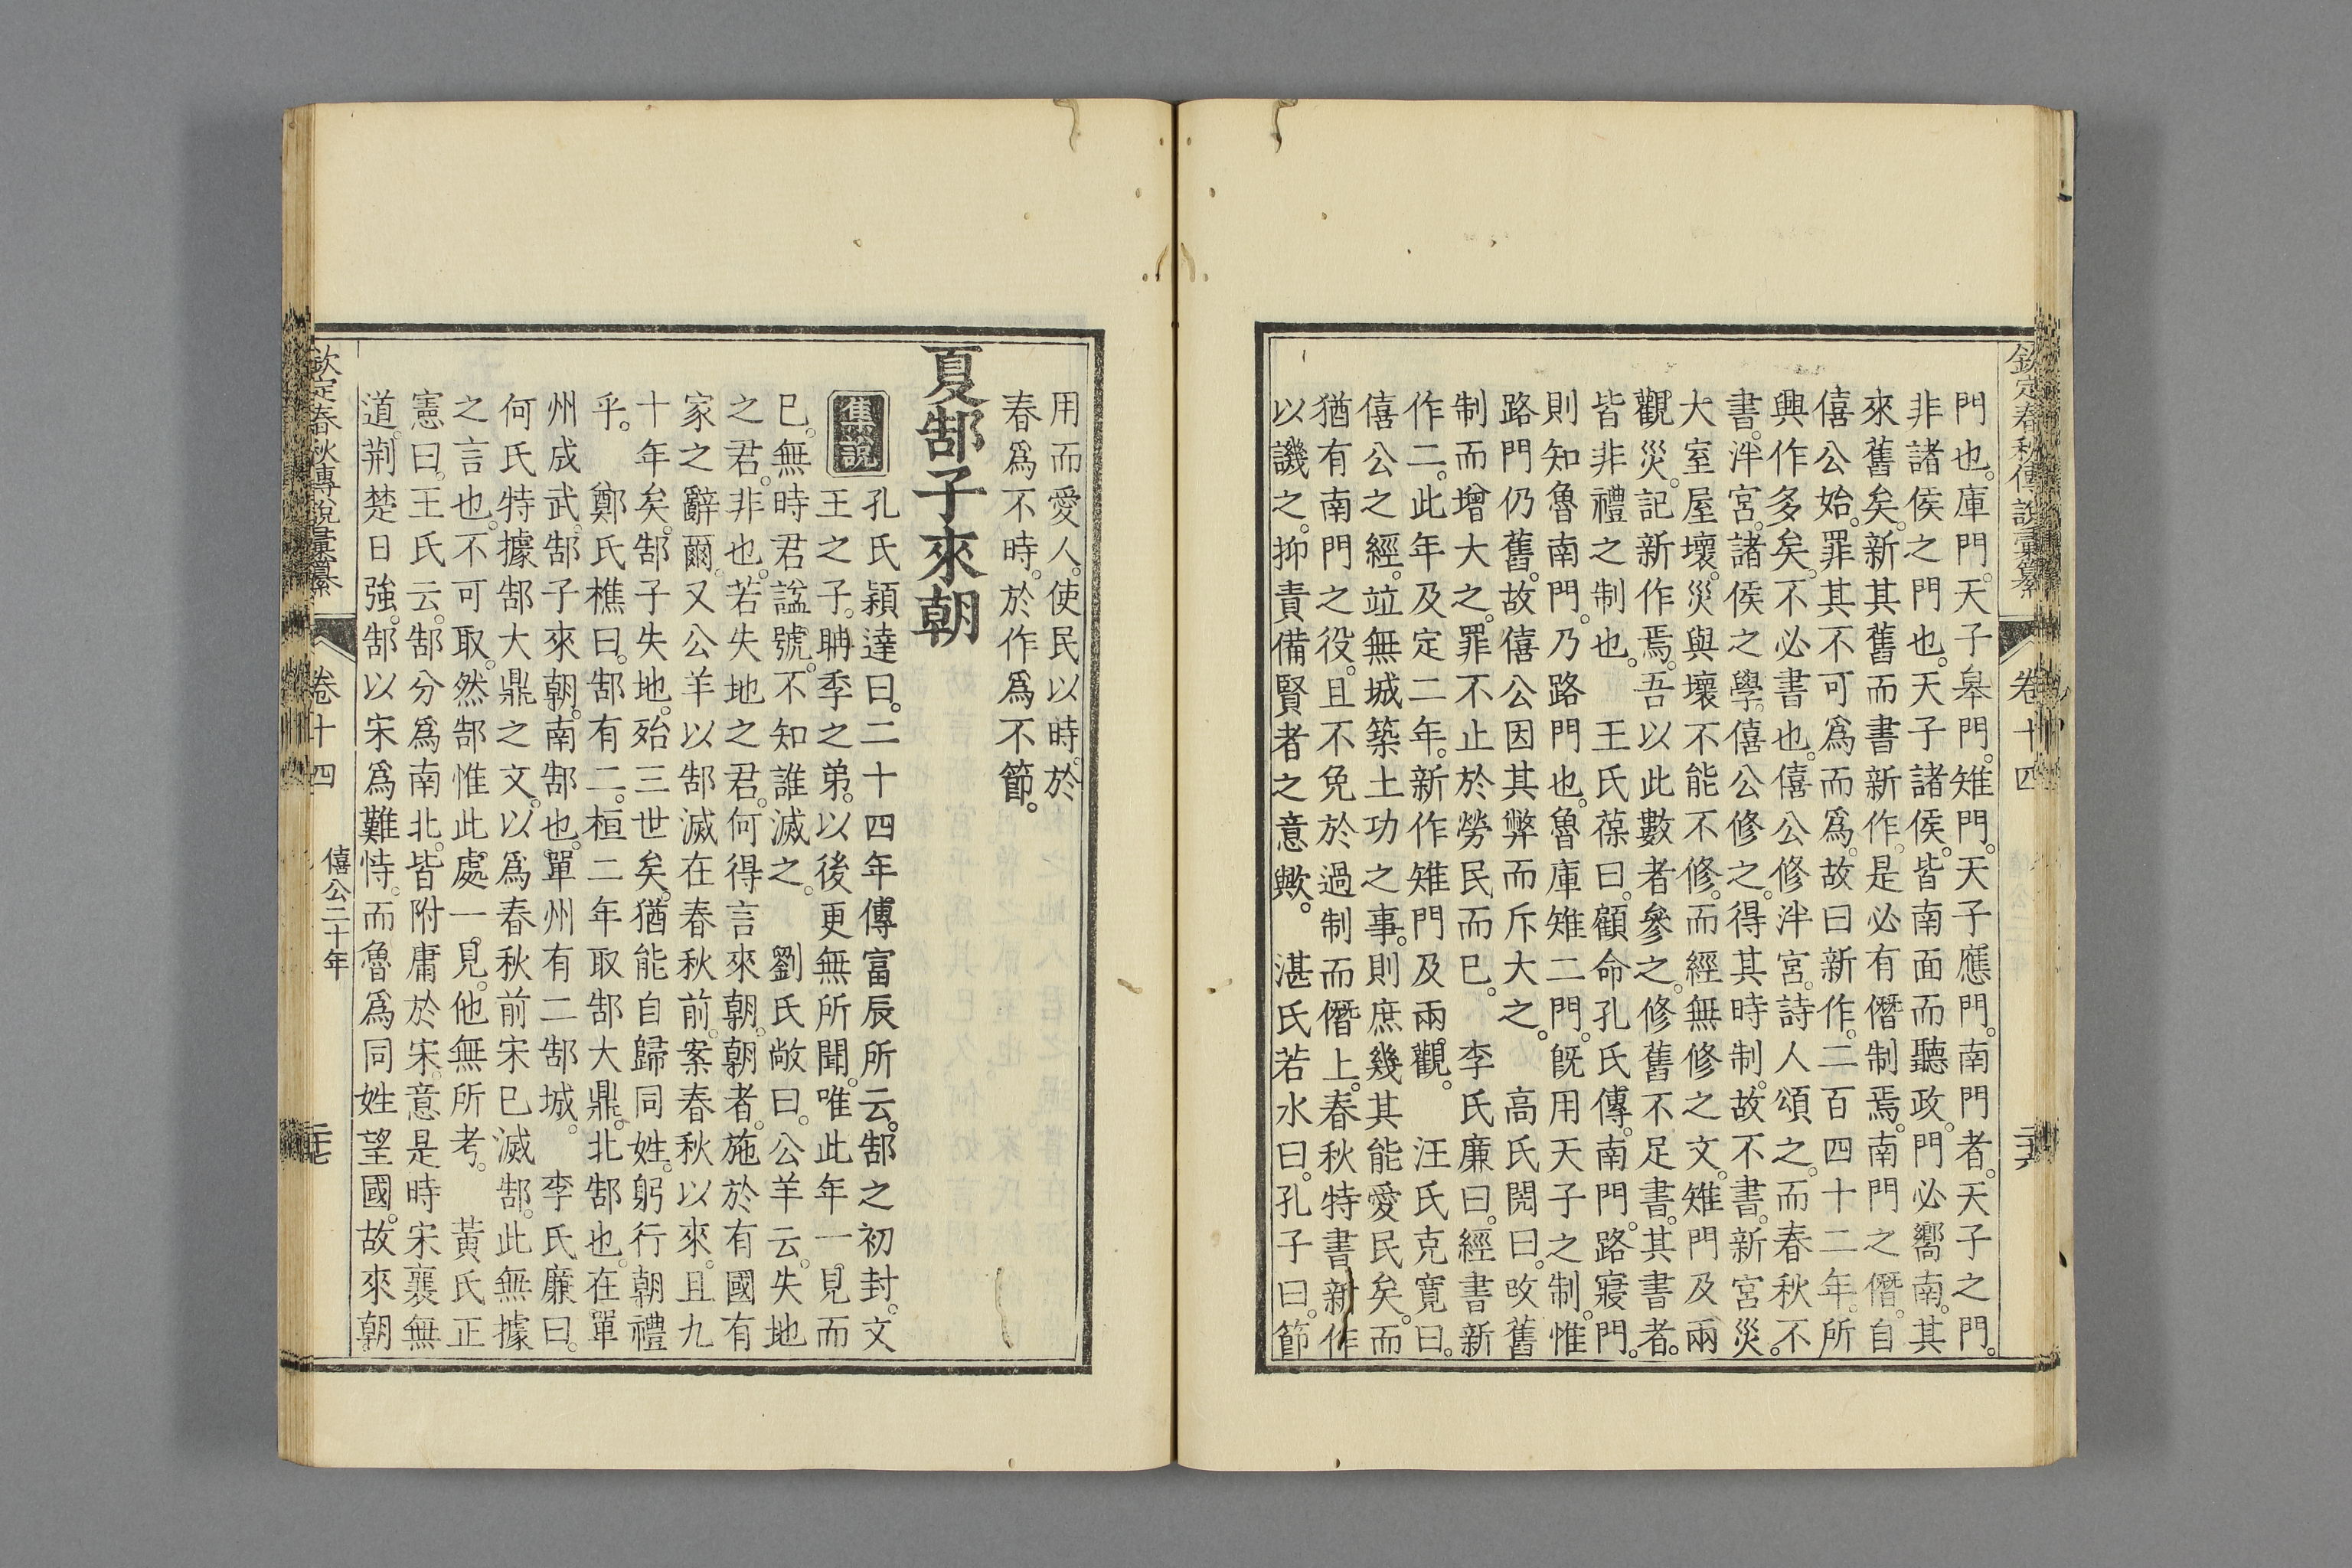 欽定春秋傳說彙纂 卷十四 二十六
門也。庫門。天子皋門。雉門。天子應門。南門者。天子之門。
非諸侯之門也。天子諸侯。皆南面而聽政。門必嚮南。其
來舊矣。新其舊而書新作。是必有僭制焉。南門之僭。自
僖公始。罪其不可爲而爲。故曰新作。二百四十二年。所
興作多矣。不必書也。僖公修泮宮。詩人頌之。而春秋不
書。泮宮。諸侯之學。僖公修之。得其時制。故不書。新宮災。
大室屋壞。災與壞不能不修。而經無修之文。雉門及兩
觀災。記新作焉。吾以此數者參之。修舊不足書。其書者。
皆非禮之制也。 王氏葆曰。顧命孔氏傳。南門。路寢門。
則知魯南門。乃路門也。魯庫雉二門。旣用天子之制。惟
路門仍舊。故僖公因其弊而斥大之。 高氏閌曰。攺舊
制而增大之。罪不止於勞民而巳。 李氏廉曰。經書新
作二。此年及定二年。新作雉門及兩觀。 汪氏克寬曰。
僖公之經。竝無城築土功之事。則庶幾其能愛民矣。而
猶有南門之役。且不免於過制而僭上。春秋特書新作
以譏之。抑責備賢者之意歟。 湛氏若水曰。孔子曰。節
用而愛人。使民以時。於
春爲不時。於作爲不節。
夏郜子來朝
集說 孔氏穎達曰。二十四年。傳富辰所云。郜之初封。文
王之子。聃季之弟。以後更無所聞。唯此年一見而
巳。無時君諡號。不知誰滅之。 劉氏敞曰。公羊云。失地
之君。非也。若失地之君。何得言來朝。朝者。施於有國有
家之辭爾。又公羊以郜滅在春秋前。案春秋以來。且九
十年矣。郜子失地。殆三世矣。猶能自歸同姓。躬行朝禮
乎。 鄭氏樵曰。郜有二。桓二年取郜大鼎。北郜也。在單
州成武。郜子來朝。南郜也。單州有二郜城。 李氏廉曰。
何氏特據郜大鼎之文。以爲春秋前宋已滅郜。此無據
之言也。不可取。然郜惟此處一見。他無所考。 黃氏正
憲曰。王氏云。郜分爲南北。皆附庸於宋。意是時宋襄無
道。荆楚日強。郜以宋爲難恃。而魯爲同姓望國。故來朝
欽定春秋傳說彙纂 卷十四 僖公二十年 二十七